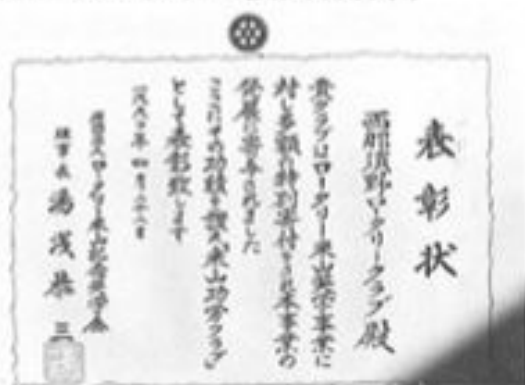 表彰状
西那須野ロータリークラブ殿
貴クラブはロータリー米山奨学事業に
対し多額の特別寄付をされ本事業の
発展に寄与されました
ここにその功績を讃え米山功労クラブ
として表彰致します
ロータリー米山記念奨学会
理事長 湯浅恭三